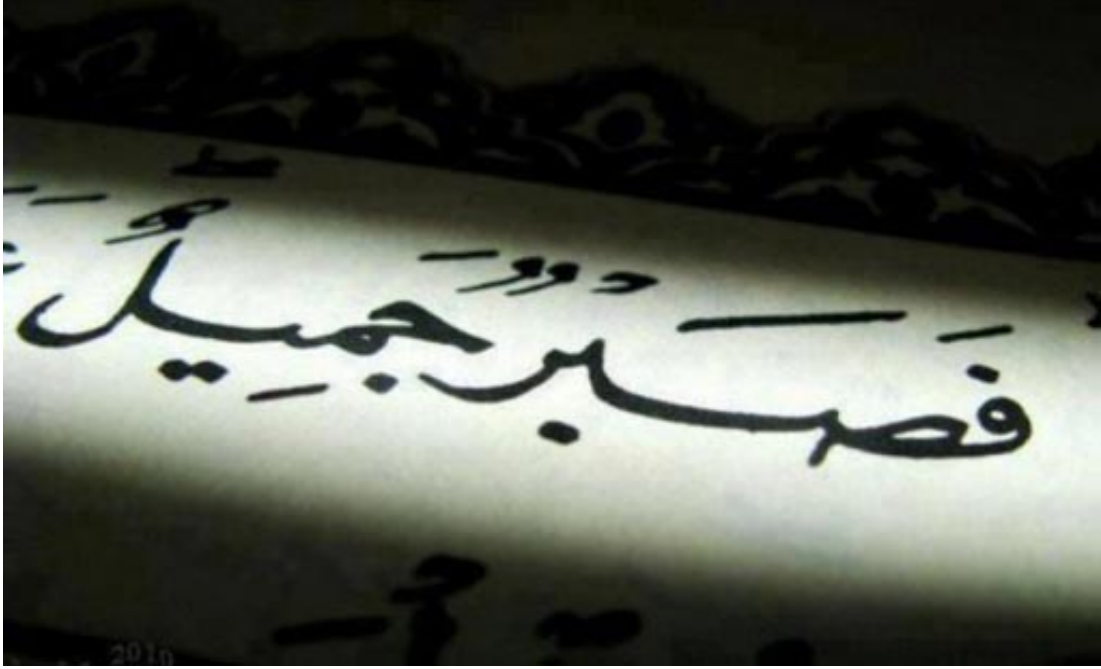 فَصَبْرٌ جَمِيلٌ
2010